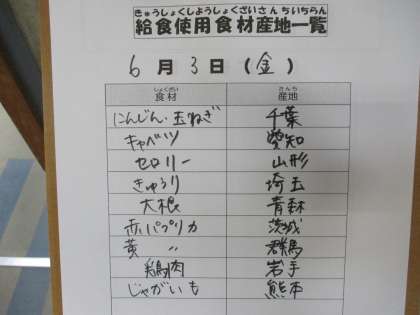 きゅうしょくしようしょくざいさんちいちらん
給食使用食材産地一覧
6月3日(金)
しょくざい さんち
食材 産地
にんじん・玉ねぎ 千葉
キャベツ 愛知
セロリー 山形
きゅうり 埼玉
大根 青森
赤パプリカ 茨城
黄 〃 群馬
鶏肉 岩手
じゃがいも 熊本